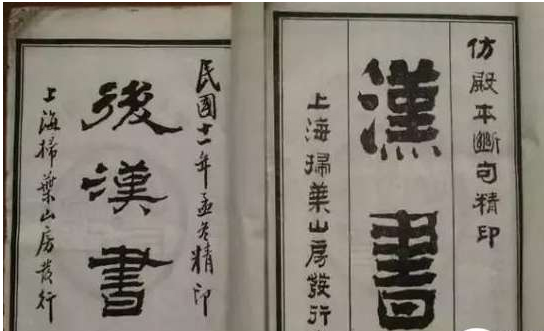 仿殿本斷句精印
漢書
上海掃葉山房發行
民國十一年孟冬精印
後漢書
上海掃葉山房發行